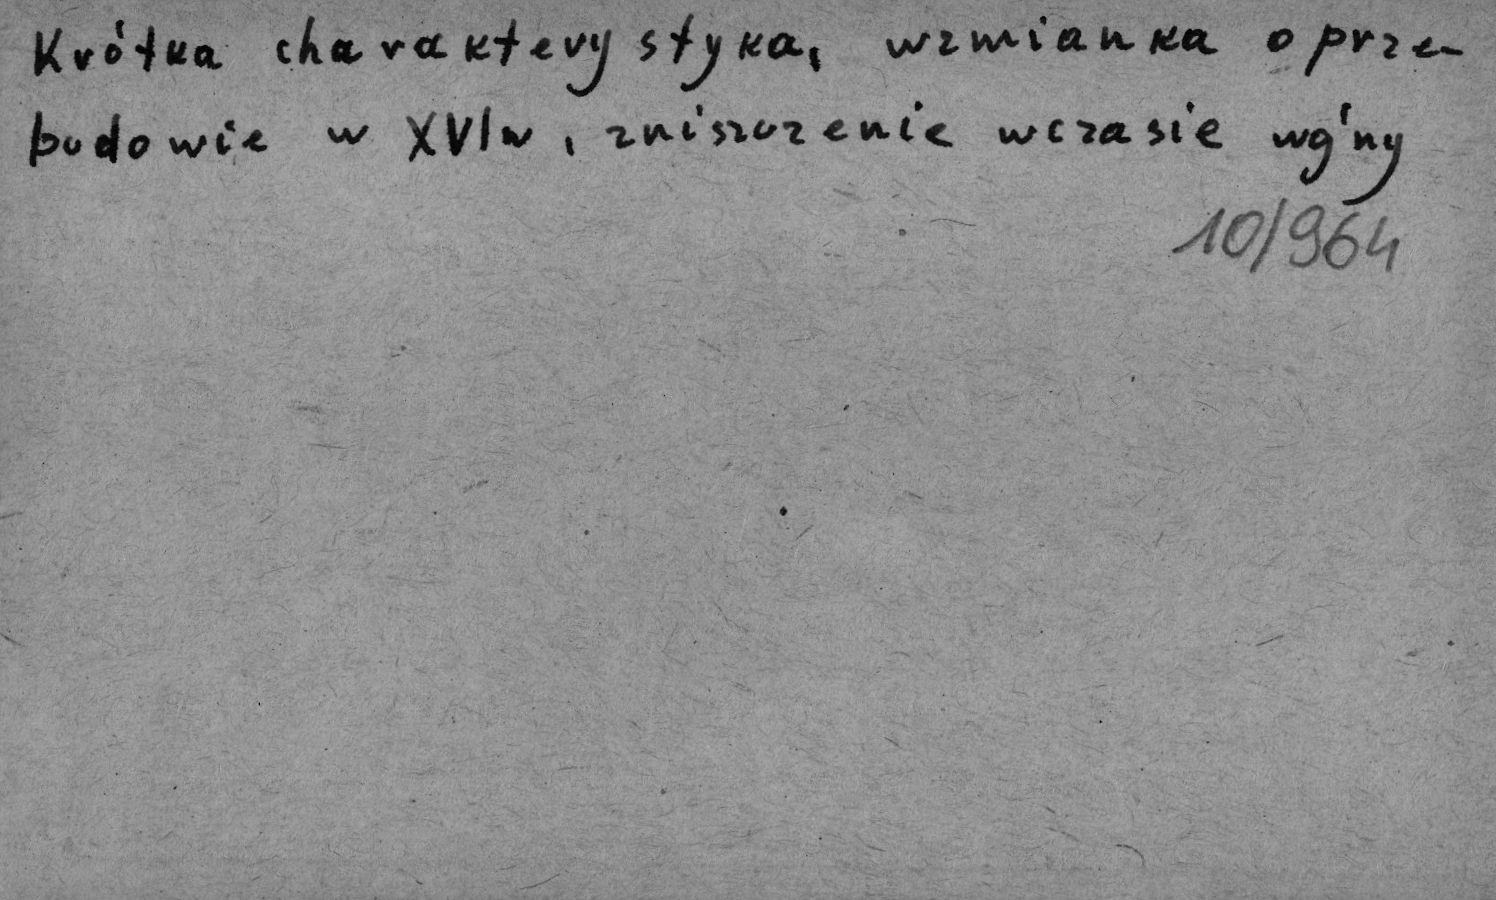 Krótka charakterystyka, wzmianka o prze-
budowie w XVIw, zniszczenie wczasie wojny
10/964